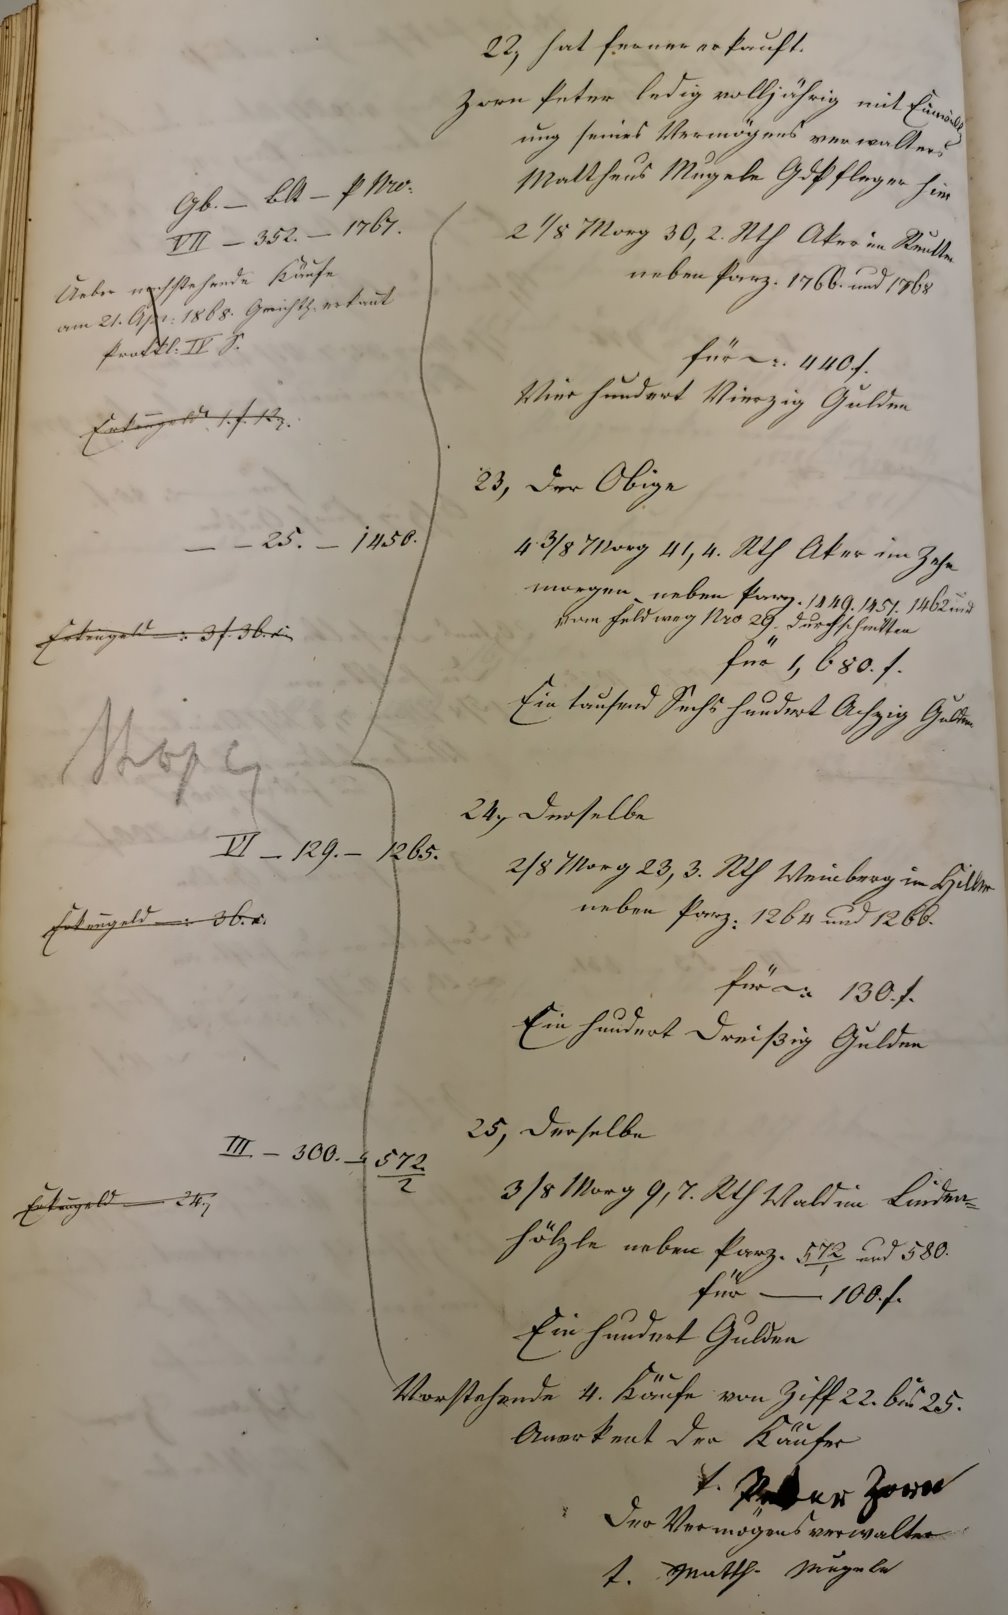 22, hat ferner erkauft.
Zorn Peter ledig volljährig mit Einwill
ung seines Vermögens verwalters
Mattheus Mugele GdPfleger hier
Gb. — Blt — P Nro.
VII — 352. — 1767.
2 1/8 Morg 30,2. Rth Aker im Reutten
neben Parz. 1766. und 1768
Ueber nachstehende Käufe
am 21. Apr. 1868. Gerichtl. erkant
Protkl: IV S.
für —: 440 f.
Vier hundert Vierzig Gulden
Erkengeld 1. f. 12.
23, Der Obige
— — 25. — 1450.
4 3/8 Morg 41,4. Rth Aker im Zehn
morgen neben Parz. 1449. 1451. 1462 und
vom Feldweg Nro 29. durchschnitten
Erkengeld —: 3 f. 36. x
für 1,680. f.
Ein tausend Sechs hundert Achzig Gulden
24, Derselbe
VI — 129. — 1265.
2/8 Morg 23,3. Rth Weinberg im Hiller
neben Parz: 1264 und 1266.
Erkengeld —: 36. x.
für —: 130. f.
Ein hundert Dreißig Gulden
25, Derselbe
III — 300. — 572/2
3/8 Morg 9,7. Rth Wald im Linden=
hölzle neben Parz. 572/1 und 580.
Erkengeld — 24,
für — 100. f.
Ein hundert Gulden
Vorstehende 4. Käufe von Ziff 22. bis 25.
Anerkent der Käufer
t. Peter Zorn
Der Vermögensverwalter
t. Matth. Mugele